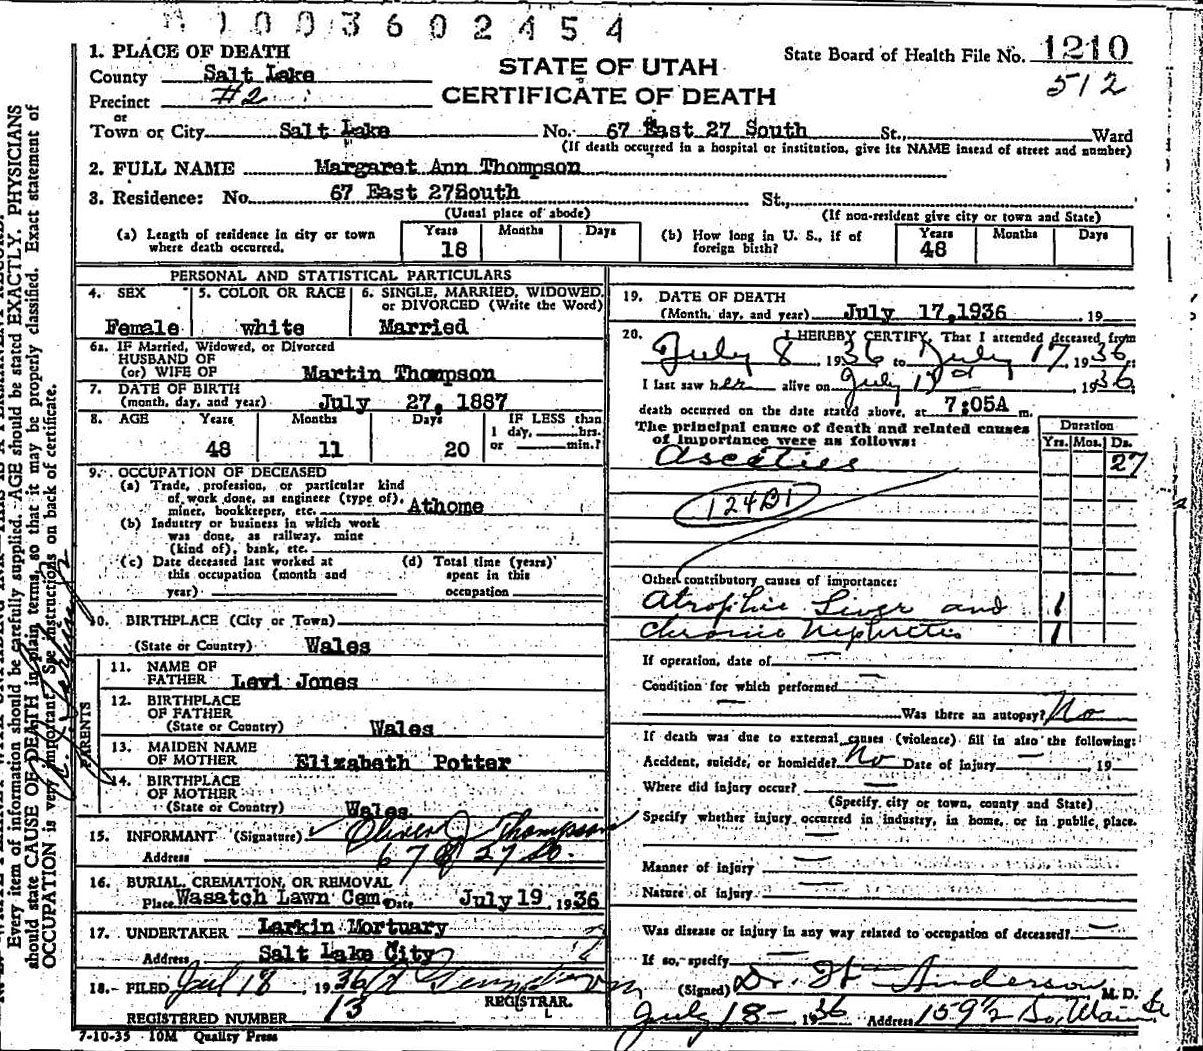 1003602454
1. PLACE OF DEATH
County Salt Lake
Precinct #2
or
Town or City Salt Lake No. 67 East 27 South St., Ward
(If death occurred in a hospital or institution, give its NAME instead of street and number)
STATE OF UTAH
CERTIFICATE OF DEATH
State Board of Health File No. 1210
512
2. FULL NAME Margaret Ann Thompson
3. Residence: No. 67 East 27South St.,
(Usual place of abode) (If non-resident give city or town and State)
(a) Length of residence in city or town where death occurred. Years 18 Months Days
(b) How long in U. S., if of foreign birth? Years 48 Months Days
PERSONAL AND STATISTICAL PARTICULARS
4. SEX Female
5. COLOR OR RACE white
6. SINGLE, MARRIED, WIDOWED, or DIVORCED (Write the Word) Married
6a. IF Married, Widowed, or Divorced
HUSBAND OF
(or) WIFE OF Martin Thompson
7. DATE OF BIRTH
(month, day, and year) July 27, 1887
8. AGE Years 48 Months 11 Days 20
IF LESS than
1 day, hrs.
or min.?
9. OCCUPATION OF DECEASED
(a) Trade, profession, or particular kind
of work done, as engineer (type of),
miner, bookkeeper, etc. Athome
(b) Industry or business in which work
was done, as railway, mine
(kind of), bank, etc.
(c) Date deceased last worked at
this occupation (month and
year)
(d) Total time (years)
spent in this
occupation
10. BIRTHPLACE (City or Town)
(State or Country) Wales
PARENTS
11. NAME OF
FATHER Levi Jones
12. BIRTHPLACE
OF FATHER
(State or Country) Wales
13. MAIDEN NAME
OF MOTHER Elizabeth Potter
14. BIRTHPLACE
OF MOTHER
(State or Country) Wales
15. INFORMANT (Signature) Oliver J Thompson
Address 67 E 27 So.
16. BURIAL, CREMATION, OR REMOVAL
Place Wasatch Lawn Cem. Date July 19, 1936
17. UNDERTAKER Larkin Mortuary
Address Salt Lake City
18. FILED Jul 18, 1936
REGISTRAR.
REGISTERED NUMBER 13
7-10-35 10M Quality Press
19. DATE OF DEATH
(Month, day, and year) July 17,1936, 19
20. I HEREBY CERTIFY, That I attended deceased from
July 8 1936 to July 17, 1936
I last saw her alive on July 1936
death occurred on the date stated above, at 7:05A m.
The principal cause of death and related causes
of importance were as follows:
Duration
Yrs. Mos. Ds.
Asceties 27
124B1
Other contributory causes of importance:
Atrophic Liver and 1
Chronic Nephretis 1
If operation, date of
Condition for which performed
Was there an autopsy? No
If death was due to external causes (violence) fill in also the following:
Accident, suicide, or homicide? No Date of injury , 19
Where did injury occur?
(Specify city or town, county and State)
Specify whether injury occurred in industry, in home, or in public place.
Manner of injury
Nature of injury
Was disease or injury in any way related to occupation of deceased?
If so, specify
(Signed) Dr. Anderson M. D.
July 18- 1936 Address 159½ So. Main St
Every item of information should be carefully supplied. AGE should be stated EXACTLY. PHYSICIANS
should state CAUSE OF DEATH in plain terms, so that it may be properly classified. Exact statement of
OCCUPATION is very important. See instructions on back of certificate.